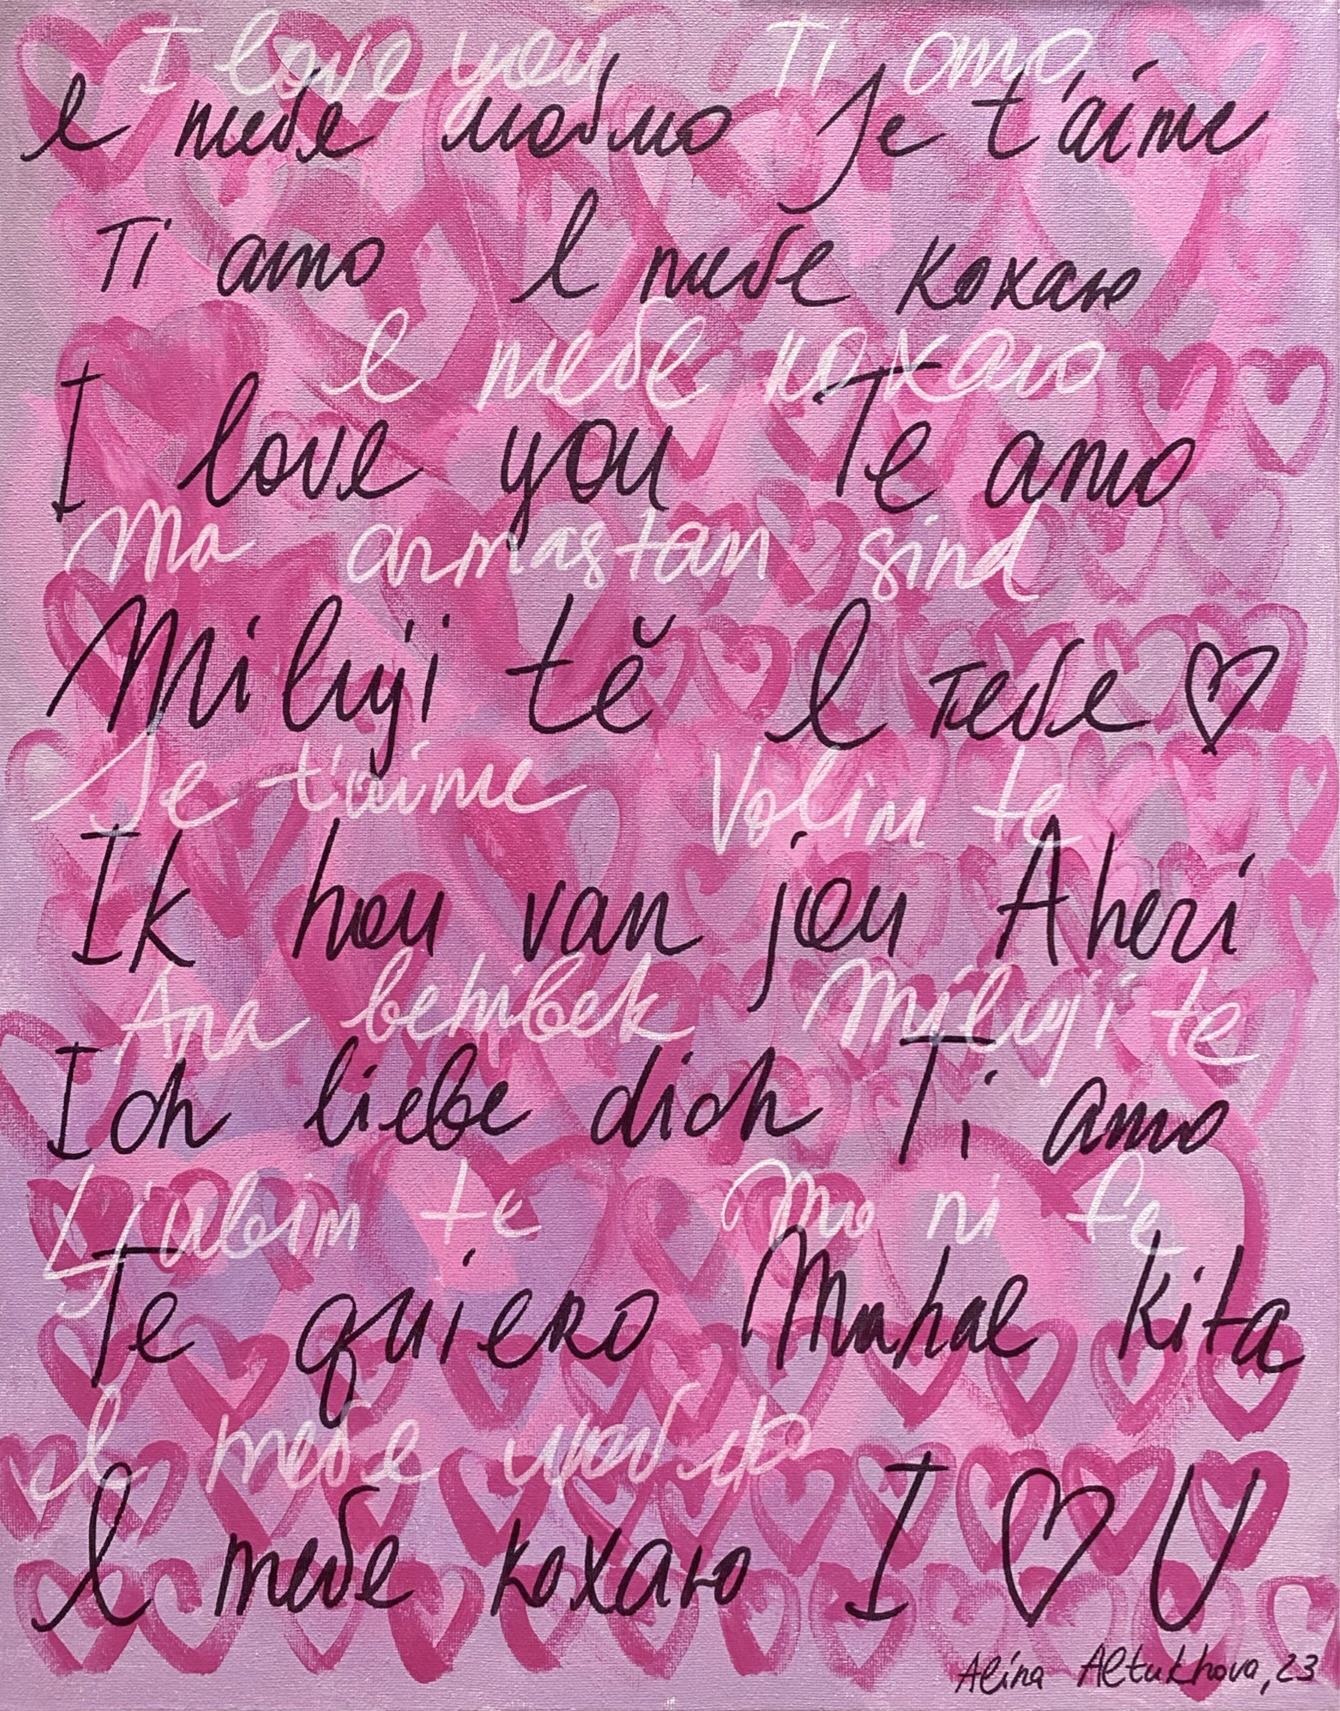 I love you Ti amo
Я тебе люблю Je t'aime
Ti amo Я тебе кохаю
Я тебе кохаю
I love you Te amo
Ma armastan sind
Miluji tě Я тебе ♡
Je t'aime Volim te
Ik hou van jou Aheri
Ana behibek Miluji te
Ich liebe dich Ti amo
Ljubim te Mo ni fe
Te quiero Mahae kita
Я тебе люблю
Я тебе кохаю I ♡ U
Alina Altukhova, 23